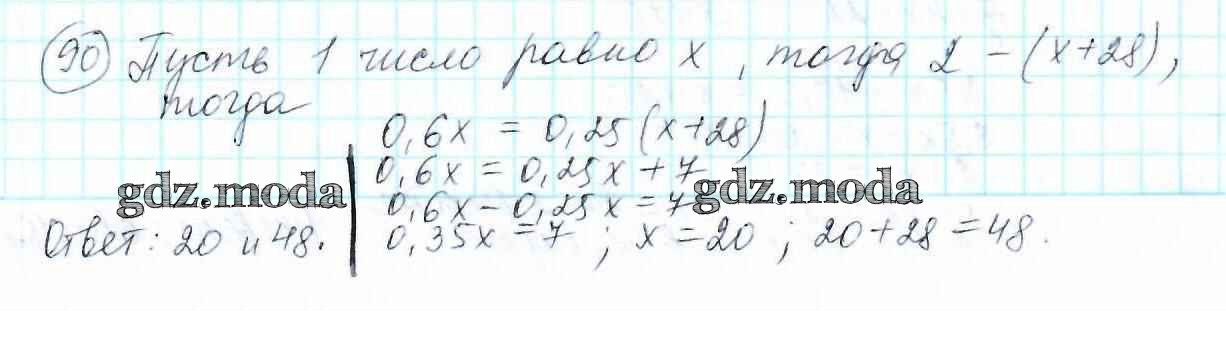 90 Пусть 1 число равно x, тогда 2 - (x+28),
тогда
0,6x = 0,25(x+28)
0,6x = 0,25x + 7
gdz.moda
gdz.moda
0,6x - 0,25x = 7
0,35x = 7 ; x = 20 ; 20 + 28 = 48.
Ответ: 20 и 48.